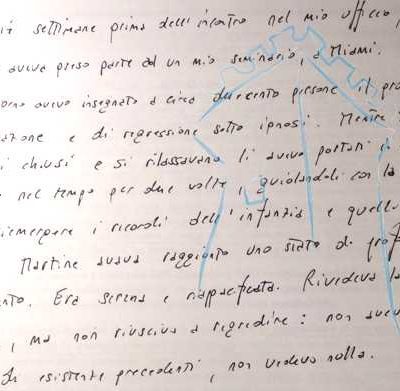 settimane prima dell'incontro nel mio ufficio,
aveva preso parte ad un mio seminario, a Miami.
avevo insegnato a circa duecento persone il pro
azione e di regressione sotto ipnosi. Mentre
i chiusi e si rilassavano li avevo portati i
nel tempo per due volte, guidandoli con la
riemergere i ricordi dell'infanzia e quelli
Martine aveva raggiunto uno stato di prof
nto. Era serena e riappacificata. Rivedeva la
, ma non riusciva a regredire: non avev
esistenze precedenti, non vedeva nulla.